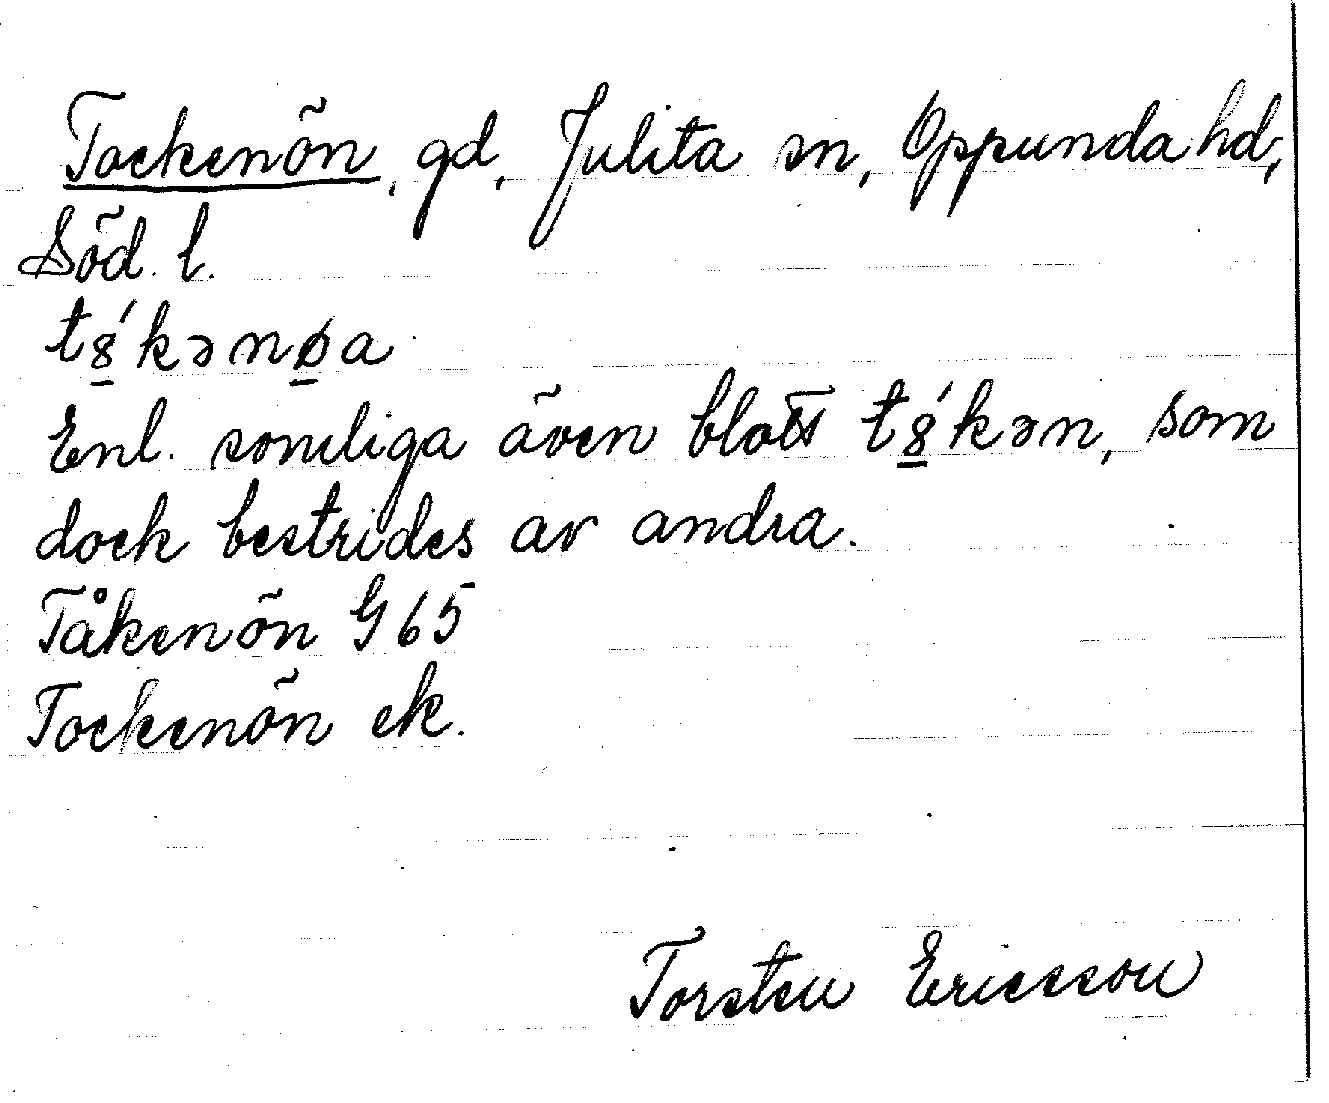 Tockenön, gd, Julita sn, Oppunda hd,
Söd. l.
tȣ̱́kənø̱a
Enl. somliga även blott tȣ̱́kən, som
dock bestrides av andra.
Tåkenön G 65
Tockenön ek.
Torsten Ericsson